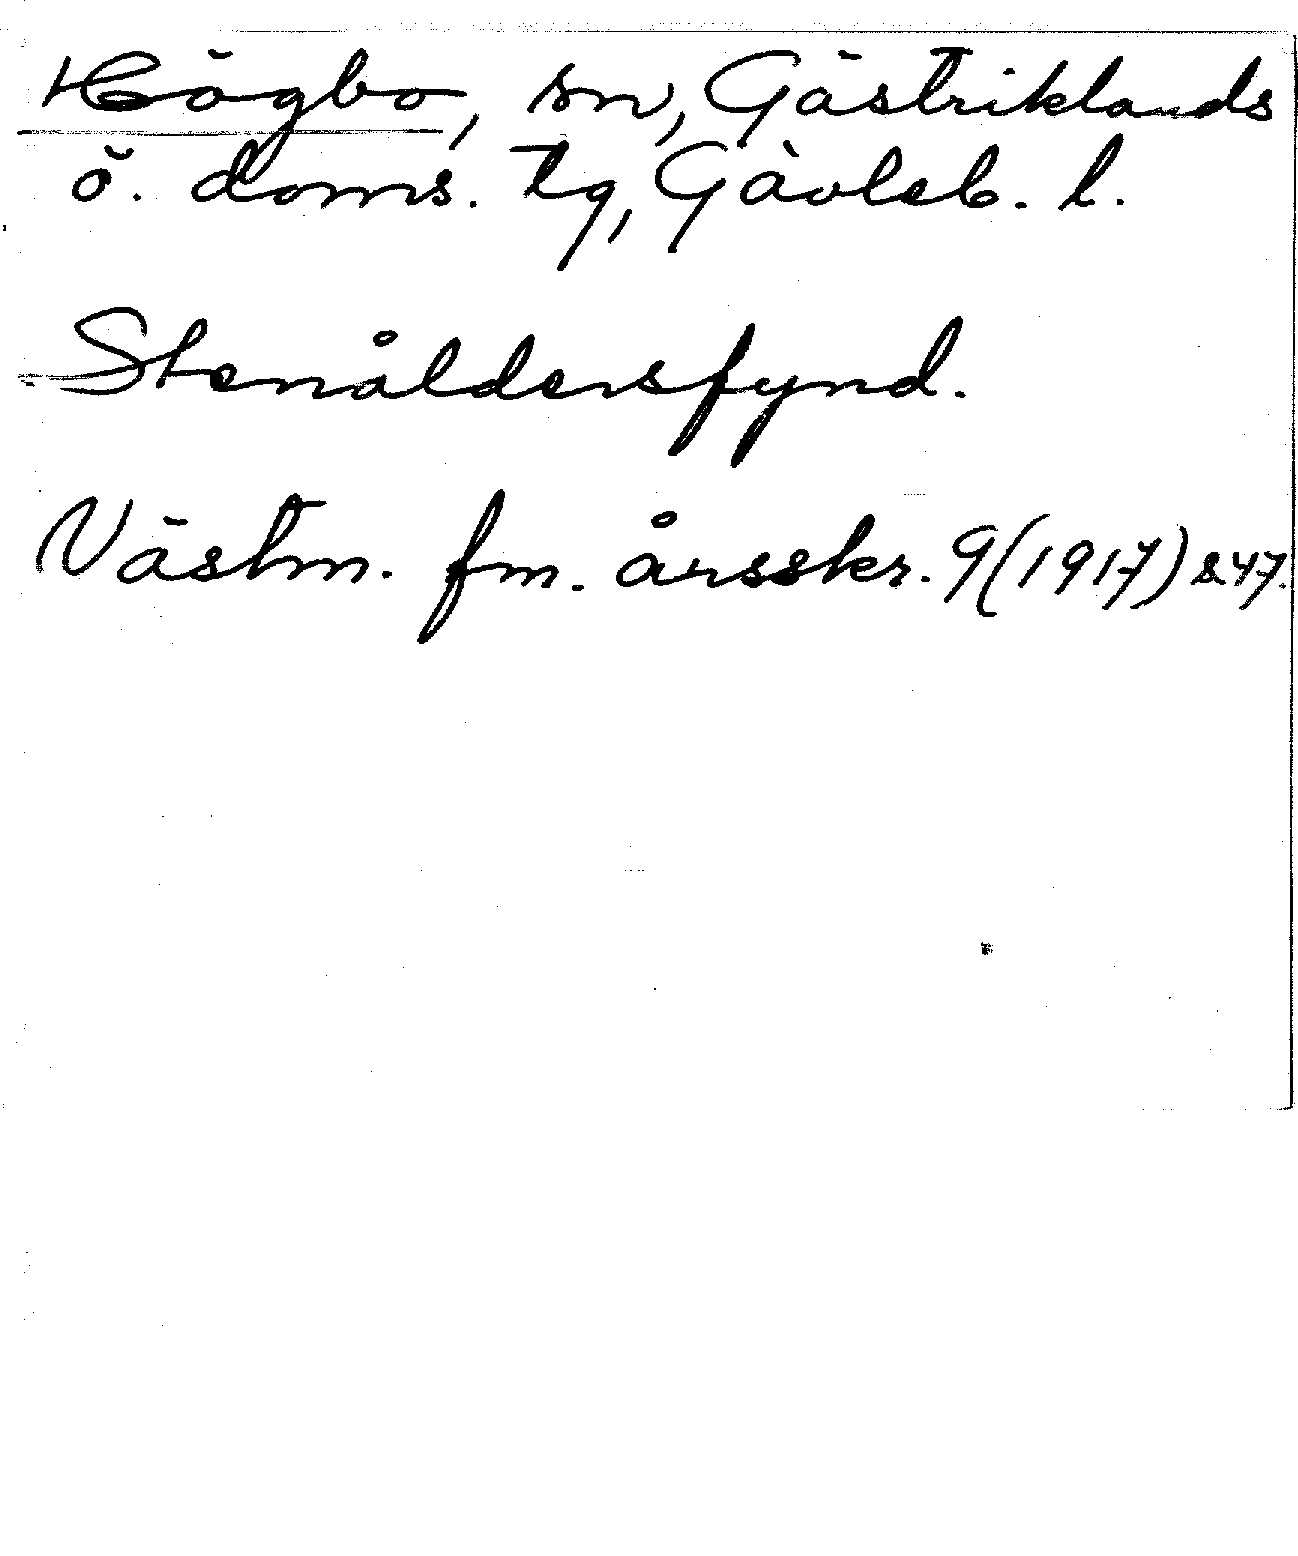 Högbo, sn, Gästriklands
ö. doms. tg, Gävleb. l.
Stenåldersfynd.
Västm. fm. årsskr. 9 (1917) s 47.